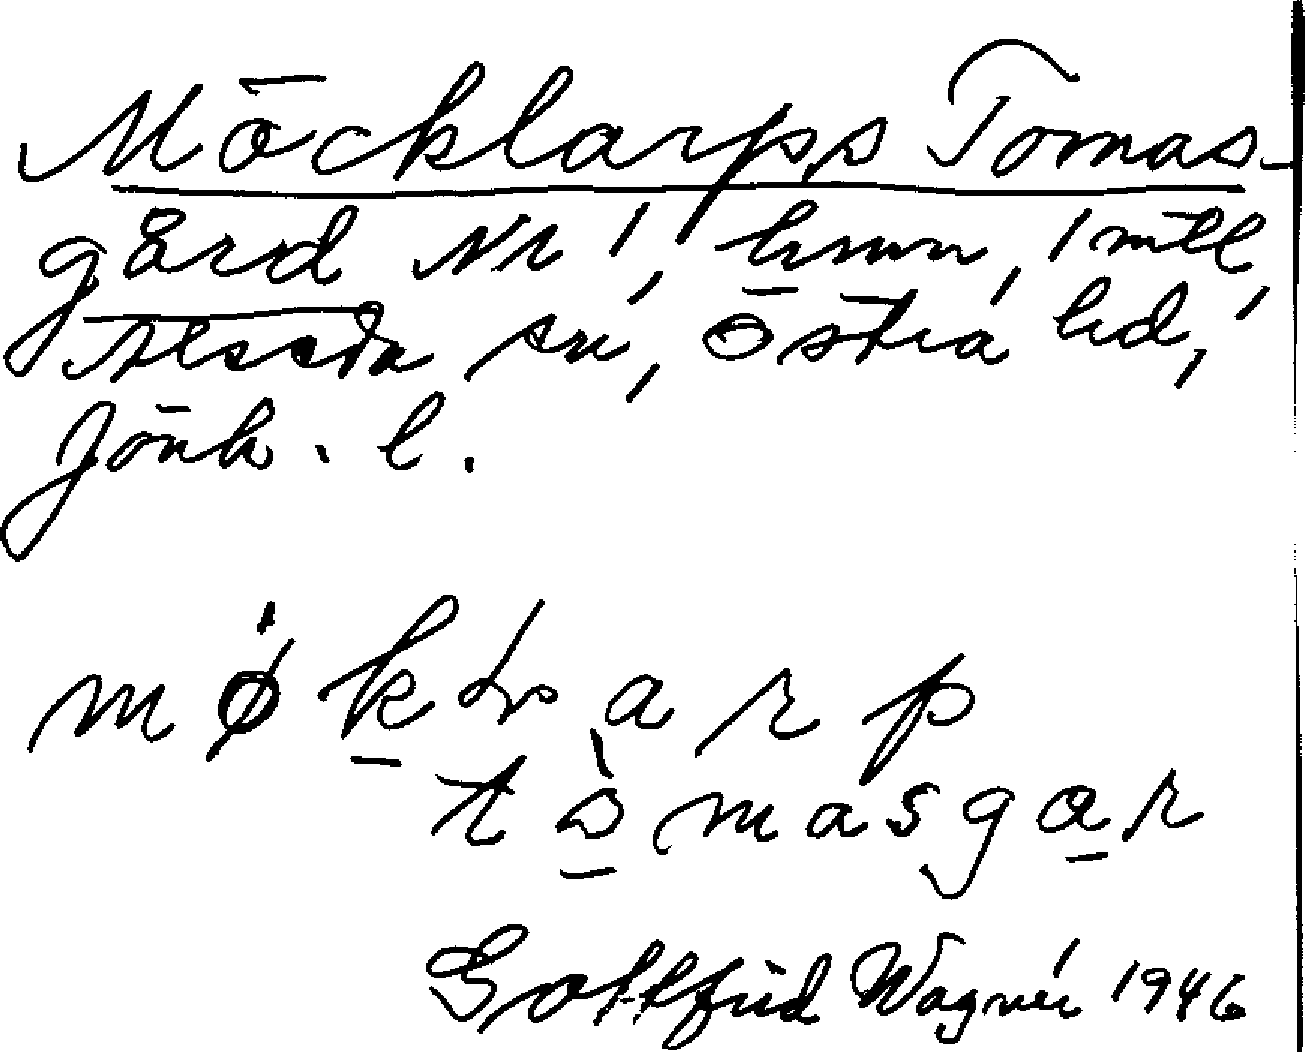 Möcklarps Tomas-
gård Nr 1, hmn, 1 mtl,
Alseda sn, Östra hd,
Jönk. l.
tò̠masga̠r
Gottfrid Wagnér 1946